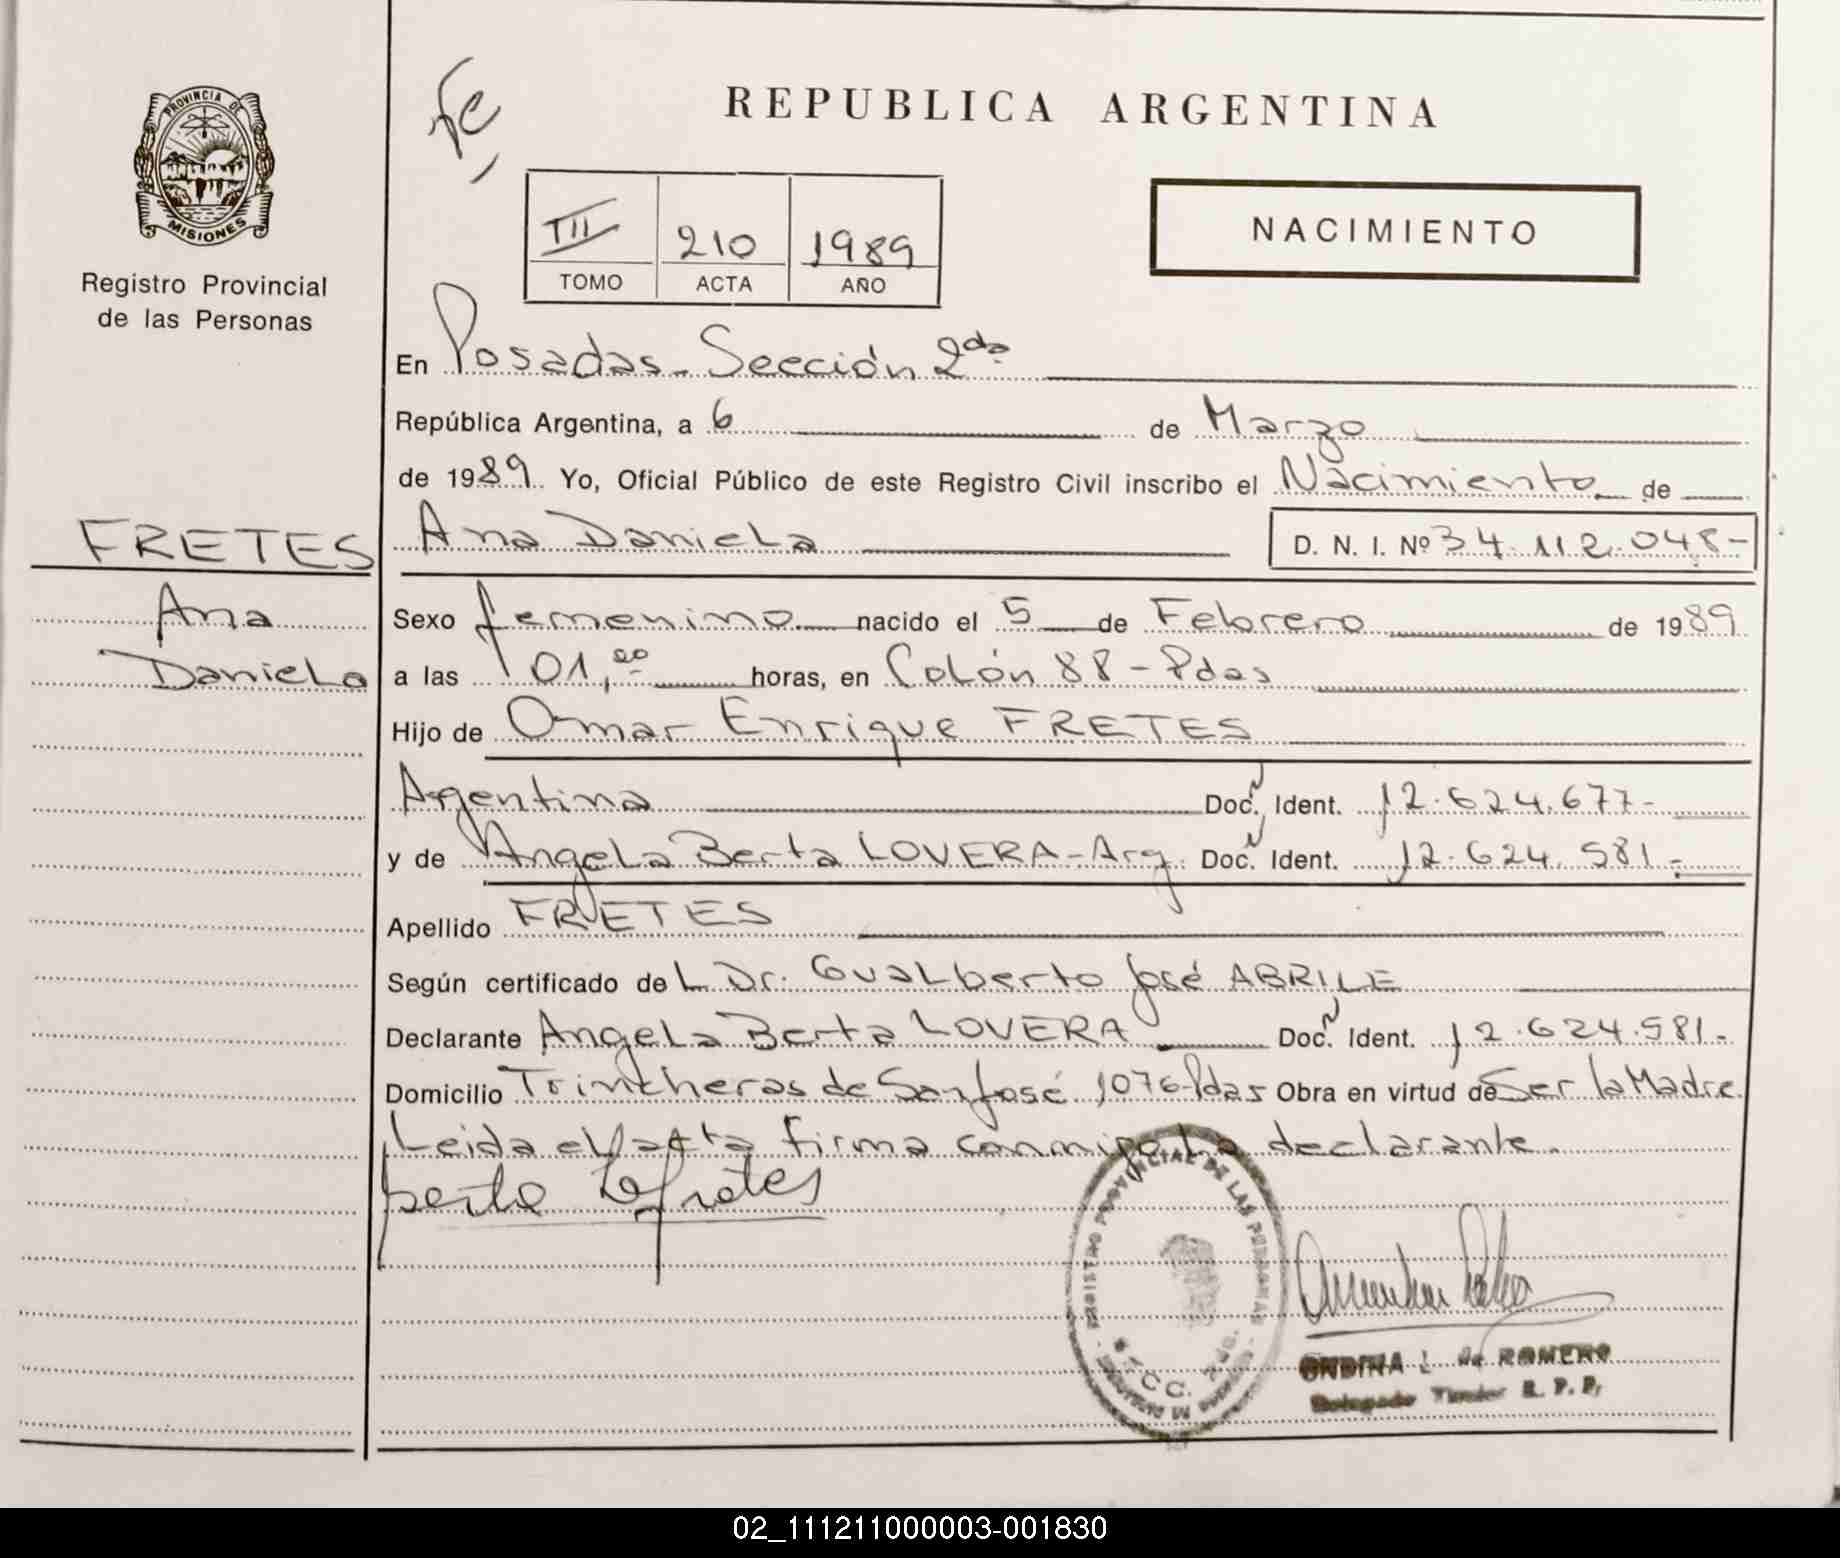 PROVINCIA DE
MISIONES
Registro Provincial
de las Personas
FRETES
Ana
Daniela
REPUBLICA ARGENTINA
III 210 1989
TOMO ACTA AÑO
NACIMIENTO
En Posadas - Sección 2da
República Argentina, a 6 de Marzo
de 1989 Yo, Oficial Público de este Registro Civil inscribo el Nacimiento de
Ana Daniela D. N. I. Nº 34.112.048-
Sexo femenino nacido el 5 de Febrero de 1989
a las 01,00 horas, en Colón 88 - Pdas
Hijo de Omar Enrique FRETES
Argentino Doc. Ident. 12.624.677-
y de Angela Berta LOVERA - Arg. Doc. Ident. 12.624.581-
Apellido FRETES
Según certificado del Dr. Gualberto José ABRILE
Declarante Angela Berta LOVERA Doc. Ident. 12.624.581-
Domicilio Trincheras de San José 1076-Pdas Obra en virtud de Ser la Madre
Leida el acta firma conmigo la declarante.
REGISTRO PROVINCIAL DE LAS PERSONAS
ONDINA L. de ROMERO
Delegado Titular R. P. P.
02_111211000003-001830